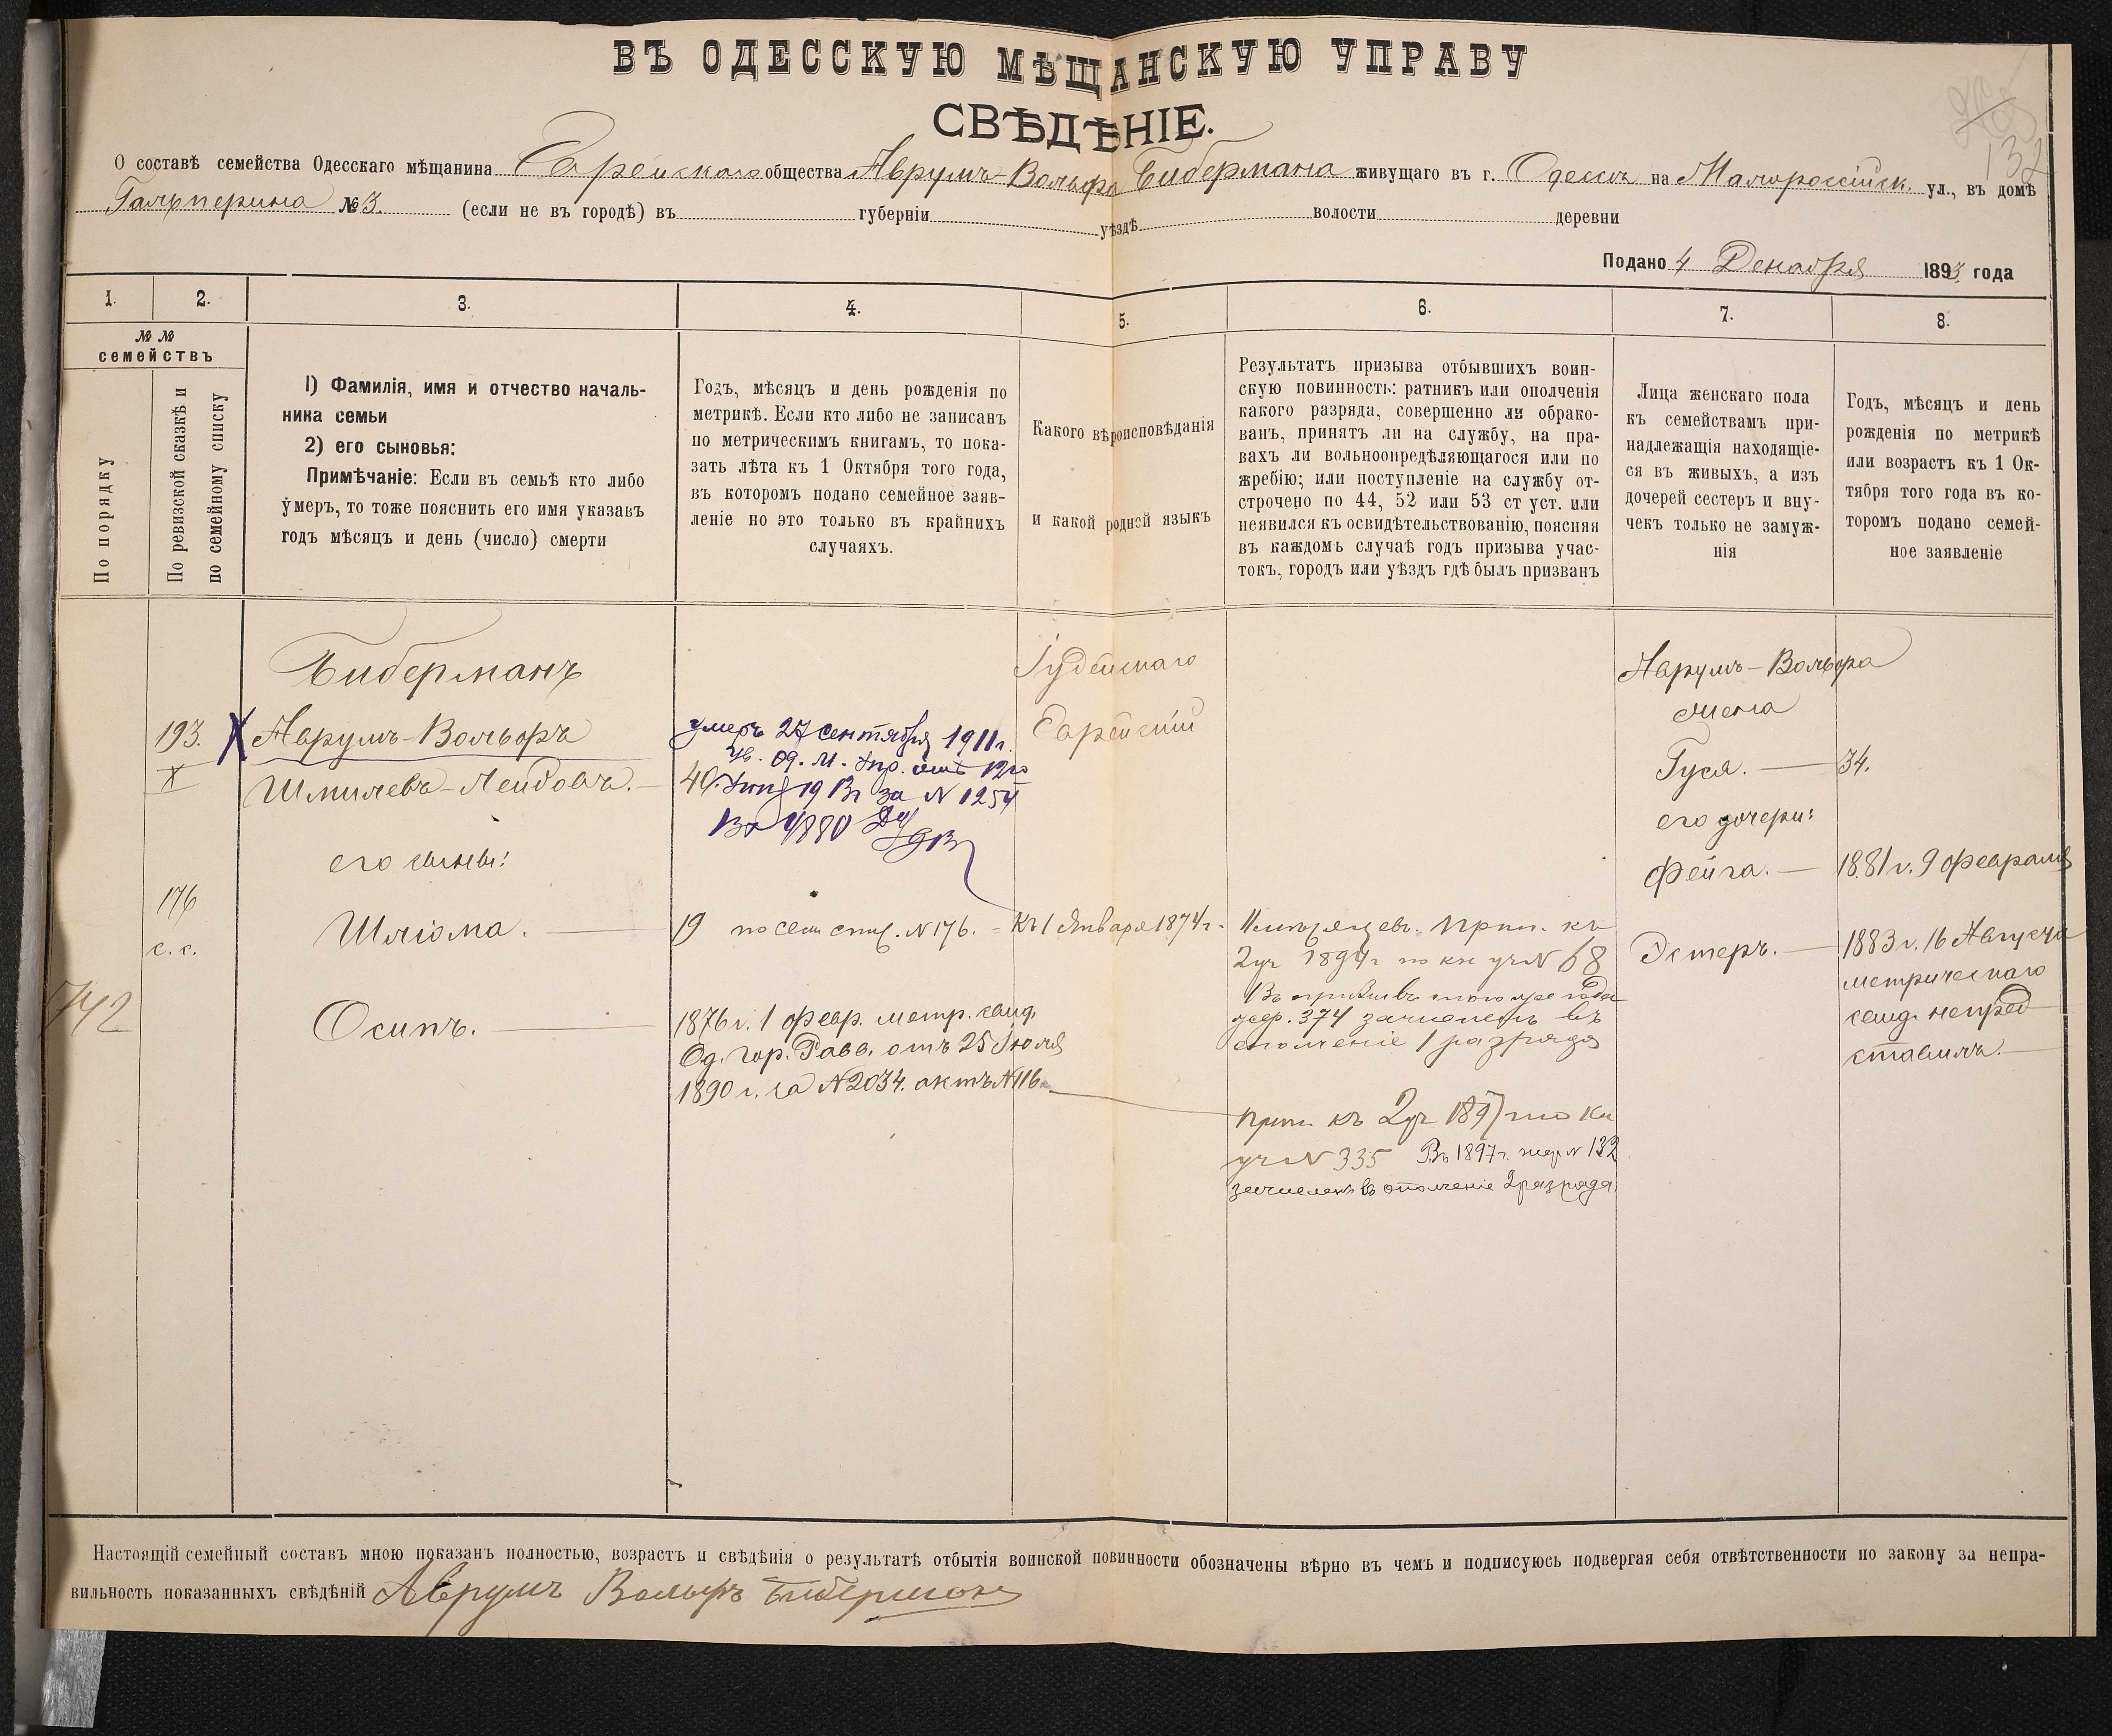 ВЪ ОДЕССКУЮ МѢЩАНСКУЮ УПРАВУ
СВѢДѢНІЕ.
132
О составѣ семейства Одесскаго мѣщанина Еврейскаго общества Аврумъ-Вольфа Бибермана живущаго въ г. Одессѣ на Малороссійск. ул., въ домѣ
Гальперина № 3. (если не въ городѣ) въ губерніи уѣздѣ волости деревни
Подано 4 Декабря 1893 года
1. 2. 3. 4. 5. 6. 7. 8.
№ №
семействъ
По порядку
По ревизской сказкѣ и
по семейному списку
1) Фамилія, имя и отчество началь-
ника семьи
2) его сыновья:
Примѣчаніе: Если въ семьѣ кто либо
умеръ, то тоже пояснить его имя указавъ
годъ мѣсяцъ и день (число) смерти
Годъ, мѣсяцъ и день рожденія по
метрикѣ. Если кто либо не записанъ
по метрическимъ книгамъ, то пока-
зать лѣта къ 1 Октября того года,
въ которомъ подано семейное заяв-
леніе но это только въ крайнихъ
случаяхъ.
Какого вѣроисповѣданія
и какой родной языкъ
Результатъ призыва отбывшихъ воин-
скую повинность: ратникъ или ополченія
какого разряда, совершенно ли обрако-
ванъ, принятъ ли на службу, на пра-
вахъ ли вольноопредѣляющагося или по
жребію; или поступленіе на службу от-
строчено по 44, 52 или 53 ст уст. или
неявился къ освидѣтельствованію, поясняя
въ каждомъ случаѣ годъ призыва учас-
токъ, городъ или уѣздъ гдѣ былъ призванъ
Лица женскаго пола
къ семействамъ при-
надлежащія находящіе-
ся въ живыхъ, а изъ
дочерей сестеръ и вну-
чекъ только не замуж-
нія
Годъ, мѣсяцъ и день
рожденія по метрикѣ
или возрастъ къ 1 Ок-
тября того года въ ко-
торомъ подано семей-
ное заявленіе
Биберманъ
193. Х Аврумъ-Вольфъ
Х
Шмилевъ-Лейбовъ.
умеръ 27 сентября 1911 г.
ув. Од. М. Упр. отъ 12го
40. за N 1254
Іудейскаго
Еврейскій
его сыновья:
176
с. с.
Шлiома.
19 по сем спис. N 176. - къ 1 Января 1874 г.
Прип. къ
2 уч 1894 г по кн уч N 68
Въ призывъ того же года
жер. 374 зачисленъ въ
ополченіе 1 разряда
742
Осипъ.
1876 г. 1 февр. метр. свид.
Од. гор. Равв. отъ 25 Іюля
1890 г. за N 2034. актъ N 116.
Прип. къ 2 уч 1897 по кн
уч N 335 Въ 1897 г. жер N 132
зачисленъ въ ополченіе 2 разряда.
Аврумъ-Вольфа
жена
Гуся. — 34.
его дочери:
Фейга. — 1881 г. 9 февраля
Эстеръ. — 1883 г. 16 Августа
метрическаго
свид. непред-
ставилъ.
Настоящій семейный составъ мною показанъ полностью, возрастъ и свѣдѣнія о результатѣ отбытія воинской повинности обозначены вѣрно въ чемъ и подписуюсь подвергая себя отвѣтственности по закону за непра-
вильность показанныхъ свѣдѣній Аврумъ Вольфъ Биберманъ